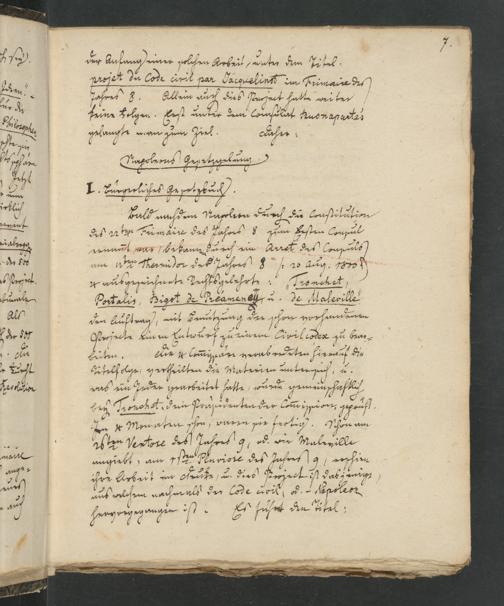 7.
der Anfang einer solchen Arbeit, unter dem Titel:
projet du Code civil par Jacqueminot im Frimaire des
Jahres 8. Allein auch dies Project hatte weiter
keine Folgen. Erst unter dem Consulat Buonapartes
gelangte man zum Ziel. Daher:
Napoleons Gesetzgebung.
I. Bürgerliches Gesetzbuch.
Bald nachdem Napoleon durch die Constitution
des 22ten Frimaire des Jahres 8 zum Ersten Consul
ernannt war, bekamen durch ein Arret des Consuls
am 24ten Thermidor des Jahres 8
4 ausgezeichnete Rechtsgelehrte: Tronchet,
Portalis, Bigot de Préameneu u. de Maleville
den Auftrag, mit Benutzung der schon vorhandenen
Projecte einen Entwurf zu einem Civilcodex zu bear-
beiten. Die 4 Commissare verabredeten hierauf die
Titelfolge, vertheilten die Materien unter sich, u.
was ein Jeder gearbeitet hatte, wurde gemeinschaftlich
bey Tronchet, dem Präsidenten der Commission, geprüft.
In 4 Monaten schon, waren sie fertig. Schon am
Ventose des Jahres 9, od. wie Maleville
angiebt, am Pluviose des Jahres 9, erschien
ihre Arbeit im Drucke, u. dies Project ist dasjenige,
aus welchem nachmals der Code civil, d. Napoleon
hervorgegangen ist. Es führt den Titel: